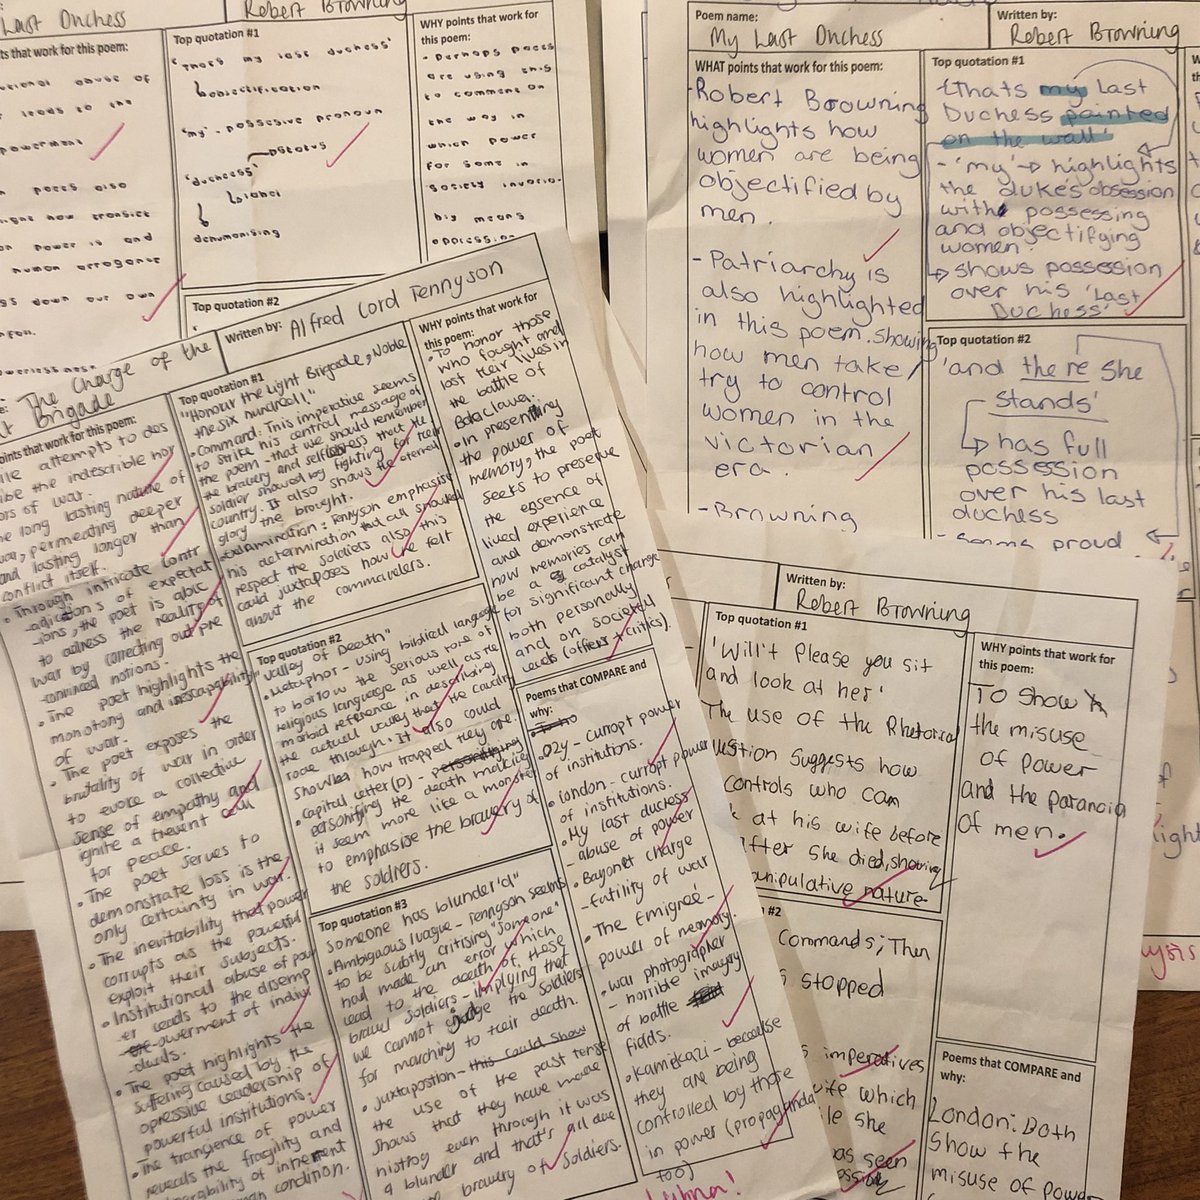 Last Duchess
Robert Browning
ts that work for this poem:
leads to the
poets also
power is and
human arrogance
down our own
Top quotation #1
'Thats my last duchess'
objectification
'my' - possesive pronoun
status
'duchess'
label
dehumanising
Top quotation #2
WHY points that work for
this poem:
- Perhaps poets
are using this
to comment on
the way in
which power
for some in
society
means
oppression
Poem name:
My Last Duchess
Written by:
Robert Browning
WHAT points that work for this poem:
- Robert Browning
highlights how
women are being
objectified by
men.
- Patriarchy is
also highlighted
in this poem. showing
how men take/
try to control
women in the
victorian
era.
- Browning
Top quotation #1
'thats my Last
Duchess painted
on the wall'
- 'my' → highlights
the duke's obsession
with possessing
and objectifying
women.
↳ shows possession
over his 'Last
Duchess'
Top quotation #2
'and there she
stands'
↳ has full
possession
over his last
duchess
proud.
The Charge of the
Brigade
Written by:
Alfred Lord Tennyson
oints that work for this poem:
attempts to des
ibe the indescribable hor
ors of war.
e long lasting nature of
war, permeating deeper
and lasting longer than
conflict itself.
• Through intricate contr
adictions of expectat
ions, the poet is able
to address the reality of
war by correcting our pre
conceived notions.
• The poet highlights the
monotony and inescapability
of war.
• The poet exposes the
brutality of war in order
to evoke a collective
sense of empathy and
ignite a fervent call
for peace.
• The poet serves to
demonstrate loss is the
only certainty in war.
• The inevitability that power
corrupts as the powerful
exploit their subjects.
• Institutional abuse of pow
er leads to the disemp
owerment of indivi
duals.
• The poet highlights the
suffering caused by the
opressive leadership of
powerful institutions.
• The transience of power
reveals the fragility and
of inherent
condition.
Top quotation #1
"Honour the Light Brigade, Noble
the six hundred!"
• Command: This imperative seems
to strike his central message of
the poem - that we should remember
the bravery and selflessness that the
soldier showed by fighting for their
country. It also shows the eternal
glory the brought.
• Exclamination: Tennyson emphasise
his determination that all should
respect the soldiers also this
could juxtaposes how he felt
about the commanders.
Top quotation #2
"valley of Death"
• Metaphor - using biblical language
to borrow the serious tone of
religious language as well as the
morbid reference in describing
the actual valley that the cavalry
rode through. It also could
show how trapped they are.
• Capital letter (D) -
personifying the death making
it seem more like a monster
to emphasise the bravery of
the soldiers.
Top quotation #3
"Someone has blunder'd"
• Ambiguous/vague - Tennyson seems
to be subtly critising "Someone"
had made an error which
lead to the death of these
brave soldiers - implying that
we cannot judge the soldiers
for marching to their death.
• Juxtaposition - this could show
the use of the past tense
shows that they have made
history even through it was
a blunder and that's all due
to bravery of soldiers.
WHY points that work for
this poem:
• To honor those
who fought and
lost their lives in
the battle of
Balaclava.
• In presenting
the power of
memory, the poet
seeks to preserve
the essence of
lived experience
and demonstrate
how memories can
be a catalyst
for significant change
both personally
and on societal
levels (offers + critics).
Poems that COMPARE and
why:
• Ozy - currupt power
of institutions.
• London - currupt power
of institutions.
• My last duchess
- abuse of power
• Bayonet charge
- futility of war
• The Emigrée -
power of memory.
• war photographer
- horrible imagry
of battle
fields.
• Kamikazi - because
they are being
controlled by those
in power (propaganda
too)
Written by:
Robert Browning
Top quotation #1
'Will't Please you sit
and look at her'
The use of the Rhetorical
question suggests how
controls who can
at his wife before
after she died, showing
manipulative nature
#2
Commands; Then
stopped
imperatives
wife which
she
was seen
WHY points that work for
this poem:
To show
the misuse
of power
and the paranoia
of men.
Poems that COMPARE and
why:
London: Both
show the
misuse of power